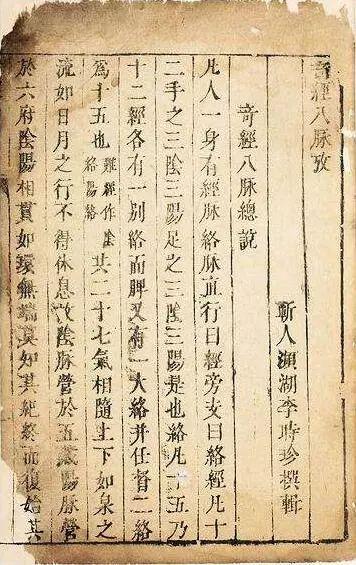 奇經八脉攷
蘄人瀕湖李時珍撰輯
竒經八脉總說
凡人一身有經脉絡脉直行曰經旁支曰絡經凡十
二手之三陰三陽足之三陰三陽是也絡凡十五乃
十二經各有一別絡而脾又有一大絡并任督二絡
爲十五也難經作陰絡陽絡其二十七氣相隨上下如泉之
流如日月之行不得休息故陰脉營於五臟陽脉營
於六府陰陽相貫如環無端莫知其紀終而復始其